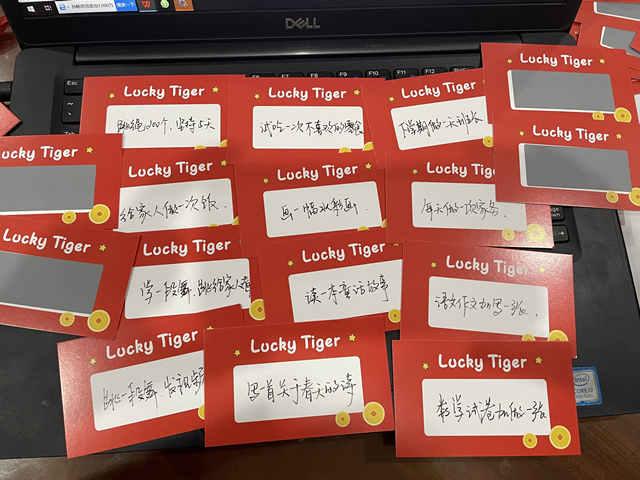 DELL
Esc
F6
F7
F8
F9
F10
F11
F12
Lucky Tiger
跳绳1000个,坚持5天
Lucky Tiger
试吃一次不喜欢的零食
Lucky Tiger
下学期做一天班长
Lucky Tiger
Lucky Tiger
ucky Tiger
Lucky Tiger
给家人做一次饭.
Lucky Tiger
画一幅水彩画.
Lucky Tiger
每天做一项家务.
Lucky Tiger
Lucky Tiger
学一段舞,跳给家人看
Lucky Tiger
读一本童话故事
Lucky Tiger
语文作文加写一张.
Lucky Tiger
跳一段舞 发视频
Lucky Tiger
写一首关于春天的诗
Lucky Tiger
数学试卷加做一张
intel